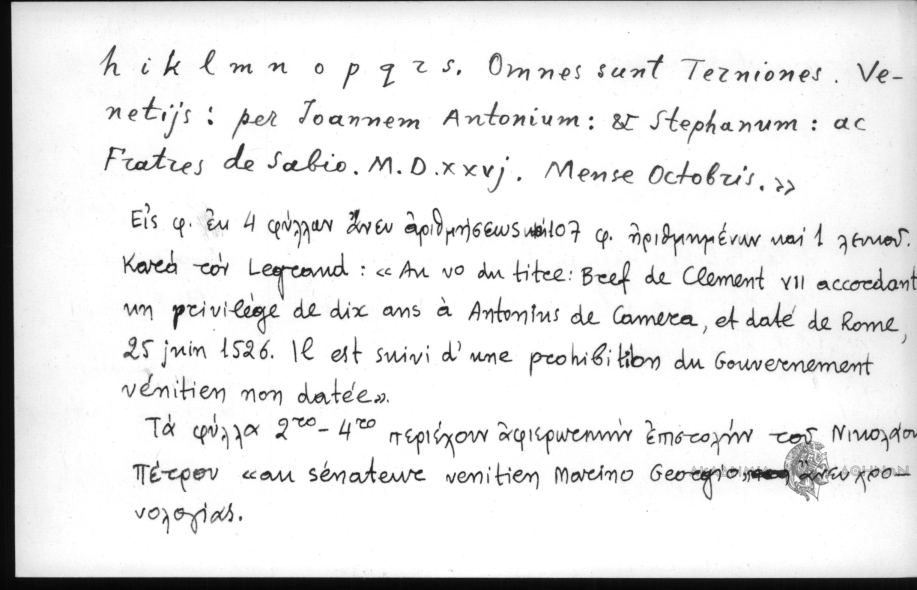 h i k l m n o p q r s. Omnes sunt Terniones. Ve-
netijs: per Joannem Antonium: & Stephanum: ac
Fratres de Sabio. M.D.xxvj. Mense Octobris.»
Εἰς φ. ἐκ 4 φύλλων ἄνευ ἀριθμήσεως καὶ 107 φ. ἠριθμημένων καὶ 1 λευκοῦ.
Κατὰ τὸν Legrand: «Au vo du titre: Bref de Clement VII accordant
un privilége de dix ans à Antonius de Camera, et daté de Rome,
25 juin 1526. Il est suivi d'une prohibition du Gouvernement
vénitien non datée».
Τὰ φύλλα 2το-4το περιέχουν ἀφιερωτικὴν ἐπιστολὴν τοῦ Νικολάου
Πέτρου «au sénateur venitien Marino Georgio, ἄνευ χρο-
νολογίας.